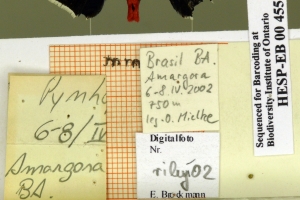 mm
Brasil BA.
Amargosa
6-8.IV.2002
750m
leg. O. Mielke
Pyrrho
6-8/IV
Amargosa
BA.
Digitalfoto
Nr.
riley02
E. Brockmann
Sequenced for Barcoding at
Biodiversity Institute of Ontario
HESP-EB 00 455